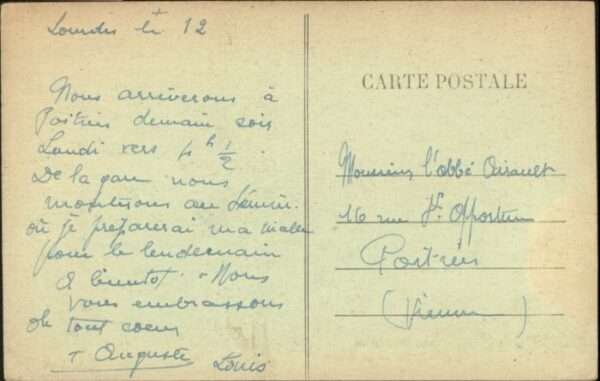 Lourdes le 12
Nous arriverons à
Poitiers demain soir
Lundi vers 4 h 1/2.
De la gare nous
monterons au Sémin.
où je préparerai ma malle
pour le lendemain
A bientôt. Nous
vous embrassons
de tout coeur
Auguste
Louis
CARTE POSTALE
Monsieur l'abbé Airault
16 rue Ste Opportune
Poitiers
(Vienne)